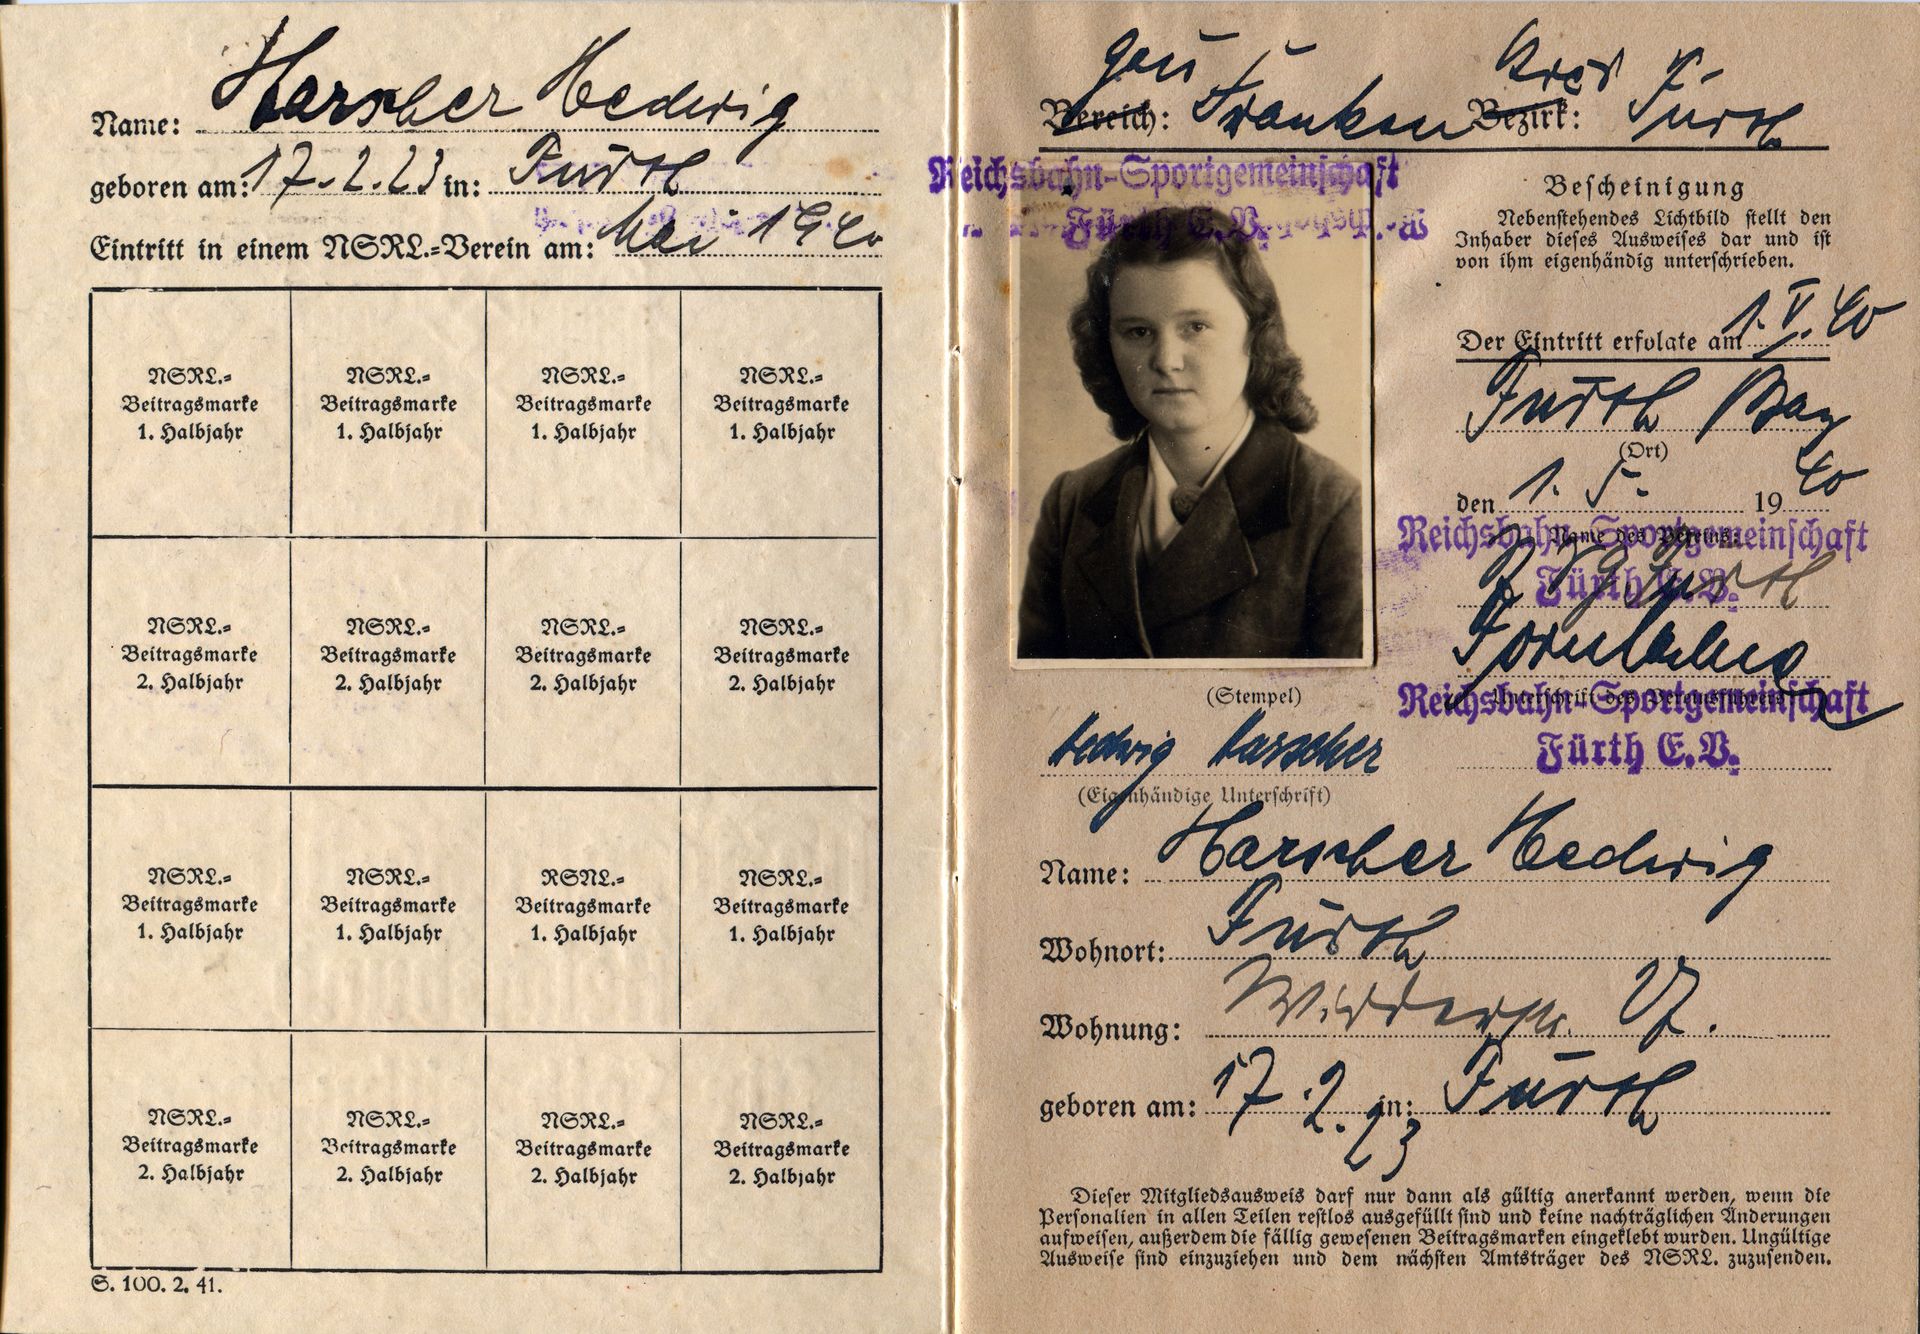 Name: Harscher Hedwig
geboren am: 17.2.23 in: Fürth
Eintritt in einem NSRL.-Verein am: Mai 1940
NSRL.- NSRL.- NSRL.- NSRL.-
Beitragsmarke Beitragsmarke Beitragsmarke Beitragsmarke
1. Halbjahr 1. Halbjahr 1. Halbjahr 1. Halbjahr
NSRL.- NSRL.- NSRL.- NSRL.-
Beitragsmarke Beitragsmarke Beitragsmarke Beitragsmarke
2. Halbjahr 2. Halbjahr 2. Halbjahr 2. Halbjahr
NSRL.- NSRL.- RSNL.- NSRL.-
Beitragsmarke Beitragsmarke Beitragsmarke Beitragsmarke
1. Halbjahr 1. Halbjahr 1. Halbjahr 1. Halbjahr
NSRL.- NSRL.- NSRL.- NSRL.-
Beitragsmarke Beitragsmarke Beitragsmarke Beitragsmarke
2. Halbjahr 2. Halbjahr 2. Halbjahr 2. Halbjahr
S. 100. 2. 41.
Gau Kreis
Bereich: Franken Bezirk: Fürth
Reichsbahn-Sportgemeinschaft
Fürth E.V.
Bescheinigung
Nebenstehendes Lichtbild stellt den
Inhaber dieses Ausweises dar und ist
von ihm eigenhändig unterschrieben.
Der Eintritt erfolgte am 1.V.40
Fürth Bay
(Ort)
den 1. 5. 1940
Reichsbahn-Sportgemeinschaft
Name des Vereins:
Fürth E.V.
Fürth
Reichsbahn-Sportgemeinschaft
Unterschrift des Vereinsführers
Fürth E.V.
(Stempel)
Hedwig Harscher
(Eigenhändige Unterschrift)
Name: Harscher Hedwig
Wohnort: Fürth
Wohnung: 17.
geboren am: 17.2.23 in: Fürth
Dieser Mitgliedsausweis darf nur dann als gültig anerkannt werden, wenn die
Personalien in allen Teilen restlos ausgefüllt sind und keine nachträglichen Änderungen
aufweisen, außerdem die fällig gewesenen Beitragsmarken eingeklebt wurden. Ungültige
Ausweise sind einzuziehen und dem nächsten Amtsträger des NSRL. zuzusenden.